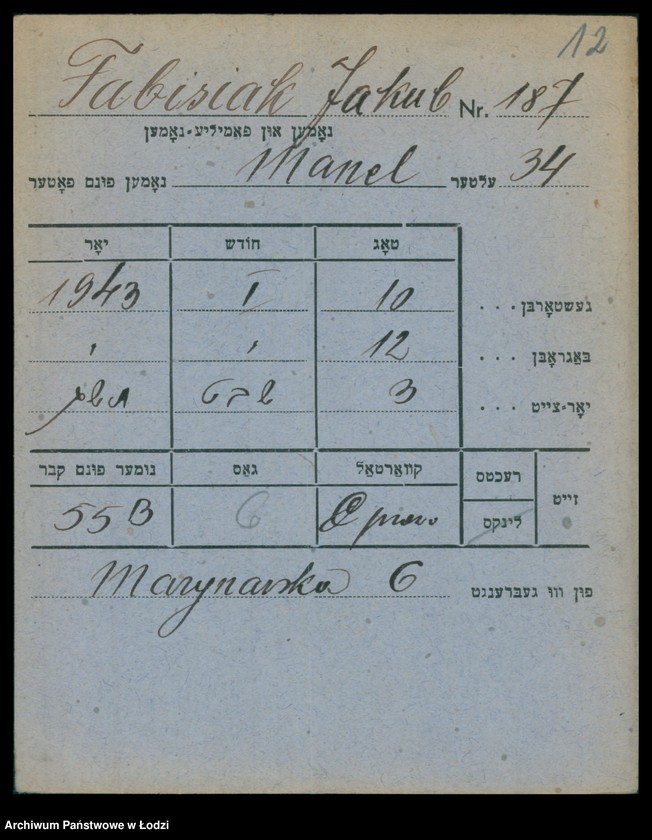 12
Fabisiak Jakub Nr. 187
נאָמען און פאַמיליע-נאָמען
נאָמען פונם פאָטער Manel עלטער 34
טאָג חודש יאָר
געשטאָרבן . . . 10 I 1943
באַגראָבן . . . 12 " "
יאָר-צייט . . . 3 שבט תשג
זייט רעכטס קוואַרטאַל גאַס נומער פונם קבר
לינקס prawo 6 55 B
פון וואו געברענגט Marynarska 6
Archiwum Państwowe w Łodzi